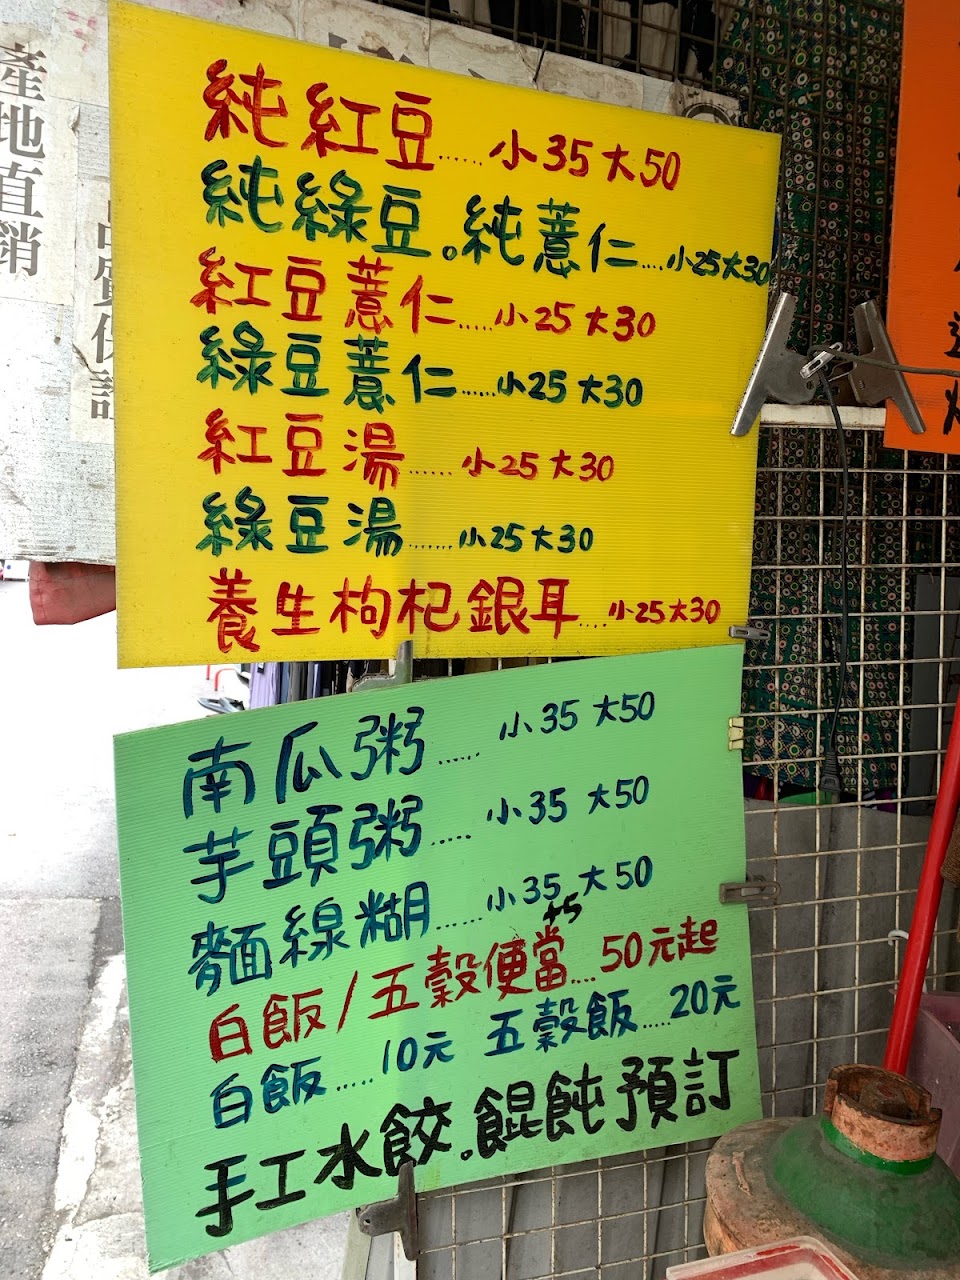 產地直銷
純紅豆......小35大50
純綠豆。純薏仁....小25大30
紅豆薏仁.....小25大30
綠豆薏仁......小25大30
紅豆湯......小25大30
綠豆湯.......小25大30
養生枸杞銀耳....小25大30
南瓜粥......小35 大50
芋頭粥.....小35 大50
麵線糊.....小35 大50
+5
白飯/五穀便當....50元起
白飯.....10元 五穀飯.....20元
手工水餃。餛飩預訂